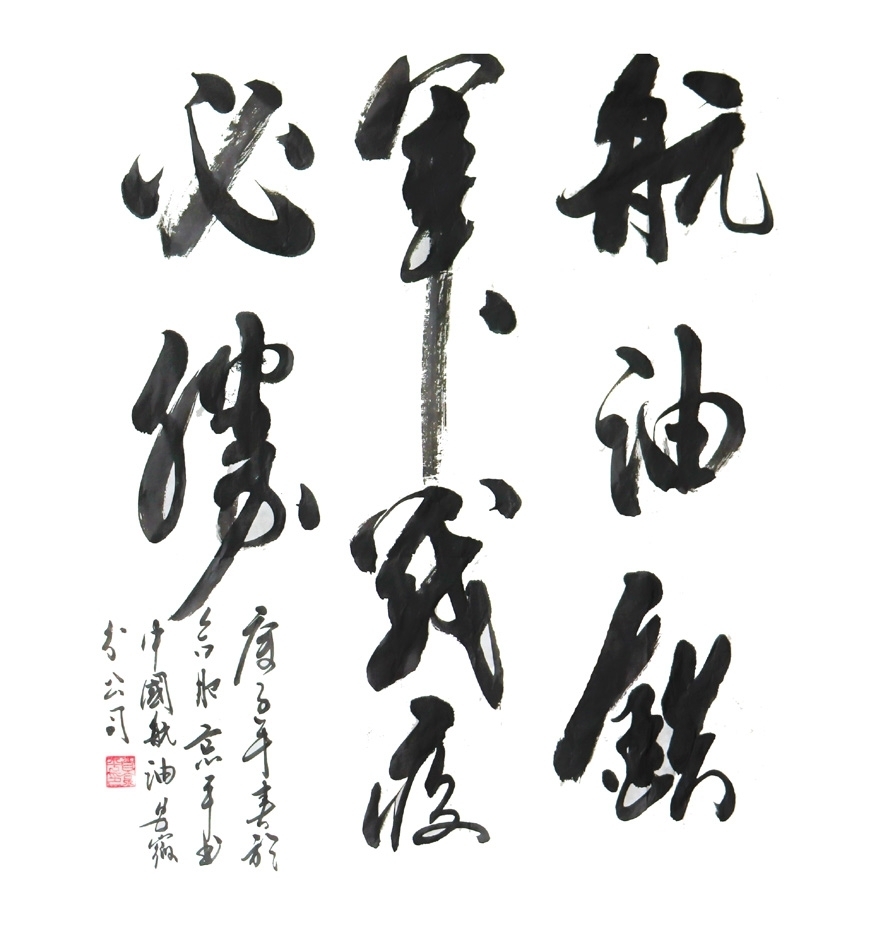 航油鉄
軍戰疫
必勝
庚子年春於
合肥 平书
中國航油安徽
分公司